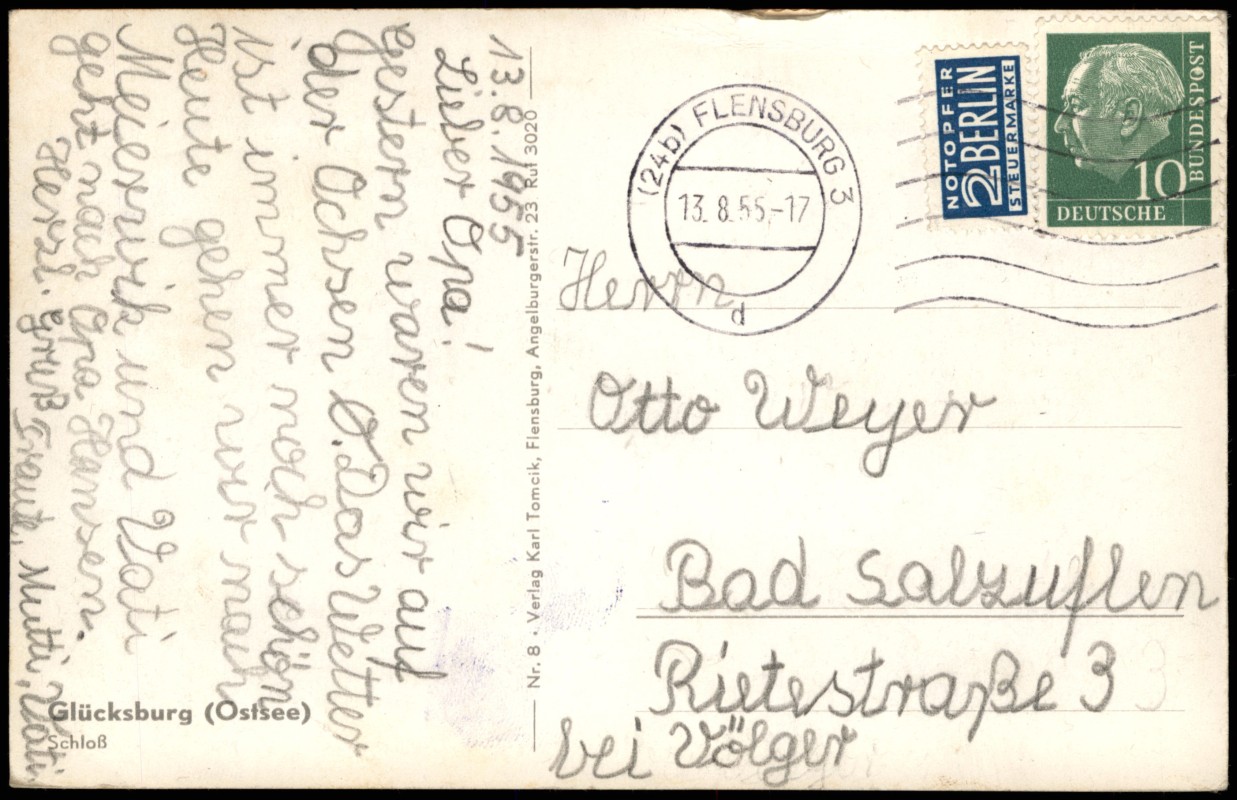 13.8.1955
Lieber Opa!
Gestern waren wir auf
der Ochsen O. Das Wetter
ist immer noch schön
Heute gehen wir nach
Meierwik und Vati
geht nach Opa Hansen.
Herzl. Gruß Traute, Mutti, Vati.
Glücksburg (Ostsee)
Schloß
Nr. 8 · Verlag Karl Tomcik, Flensburg, Angelburgerstr. 23 Ruf 3020
(24b) FLENSBURG 3
13.8.55.-17
d
NOTOPFER
2 BERLIN
STEUERMARKE
10
DEUTSCHE
BUNDESPOST
Herrn
Otto Weyer
Bad Salzuflen
Rietestraße 3
bei Völger